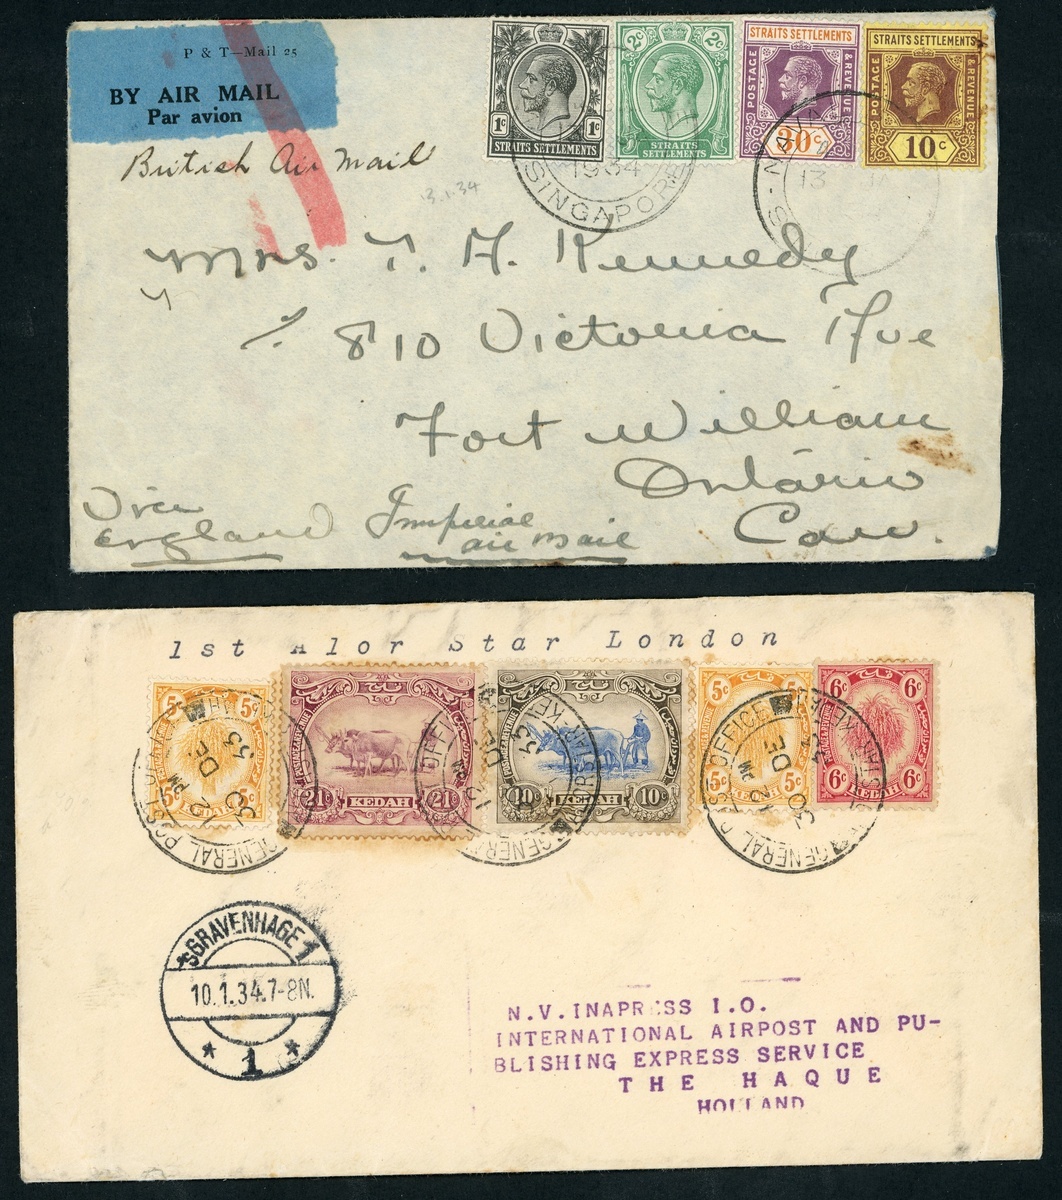 P & T—Mail 25
BY AIR MAIL
Par avion
British Air Mail
13.1.34
1c 1c
STRAITS SETTLEMENTS
2c 2c
STRAITS SETTLEMENTS
STRAITS SETTLEMENTS
POSTAGE & REVENUE
30c
STRAITS SETTLEMENTS
POSTAGE & REVENUE
10c
1934
SINGAPORE
13
Mrs. T. A. Kennedy
% 810 Victoria Ave
Fort William
Ontario
Can.
Via
England
Imperial
air mail
1st Alor Star London
5c 5c
5c 5c
KEDAH
POSTAGE & REVENUE
21c KEDAH 21c
POSTAGE & REVENUE
10c KEDAH 10c
5c 5c
5c 5c
KEDAH
6c 6c
6c 6c
KEDAH
GENERAL POST OFFICE
2 PM
30 DE
33
GENERAL POST OFFICE
GENERAL POST OFFICE
2 PM
30 DE
33
SGRAVENHAGE 1
10.1.34.7-8N.
* 1 *
N.V. INAPRESS I.O.
INTERNATIONAL AIRPOST AND PU-
BLISHING EXPRESS SERVICE
THE HAQUE
HOLLAND